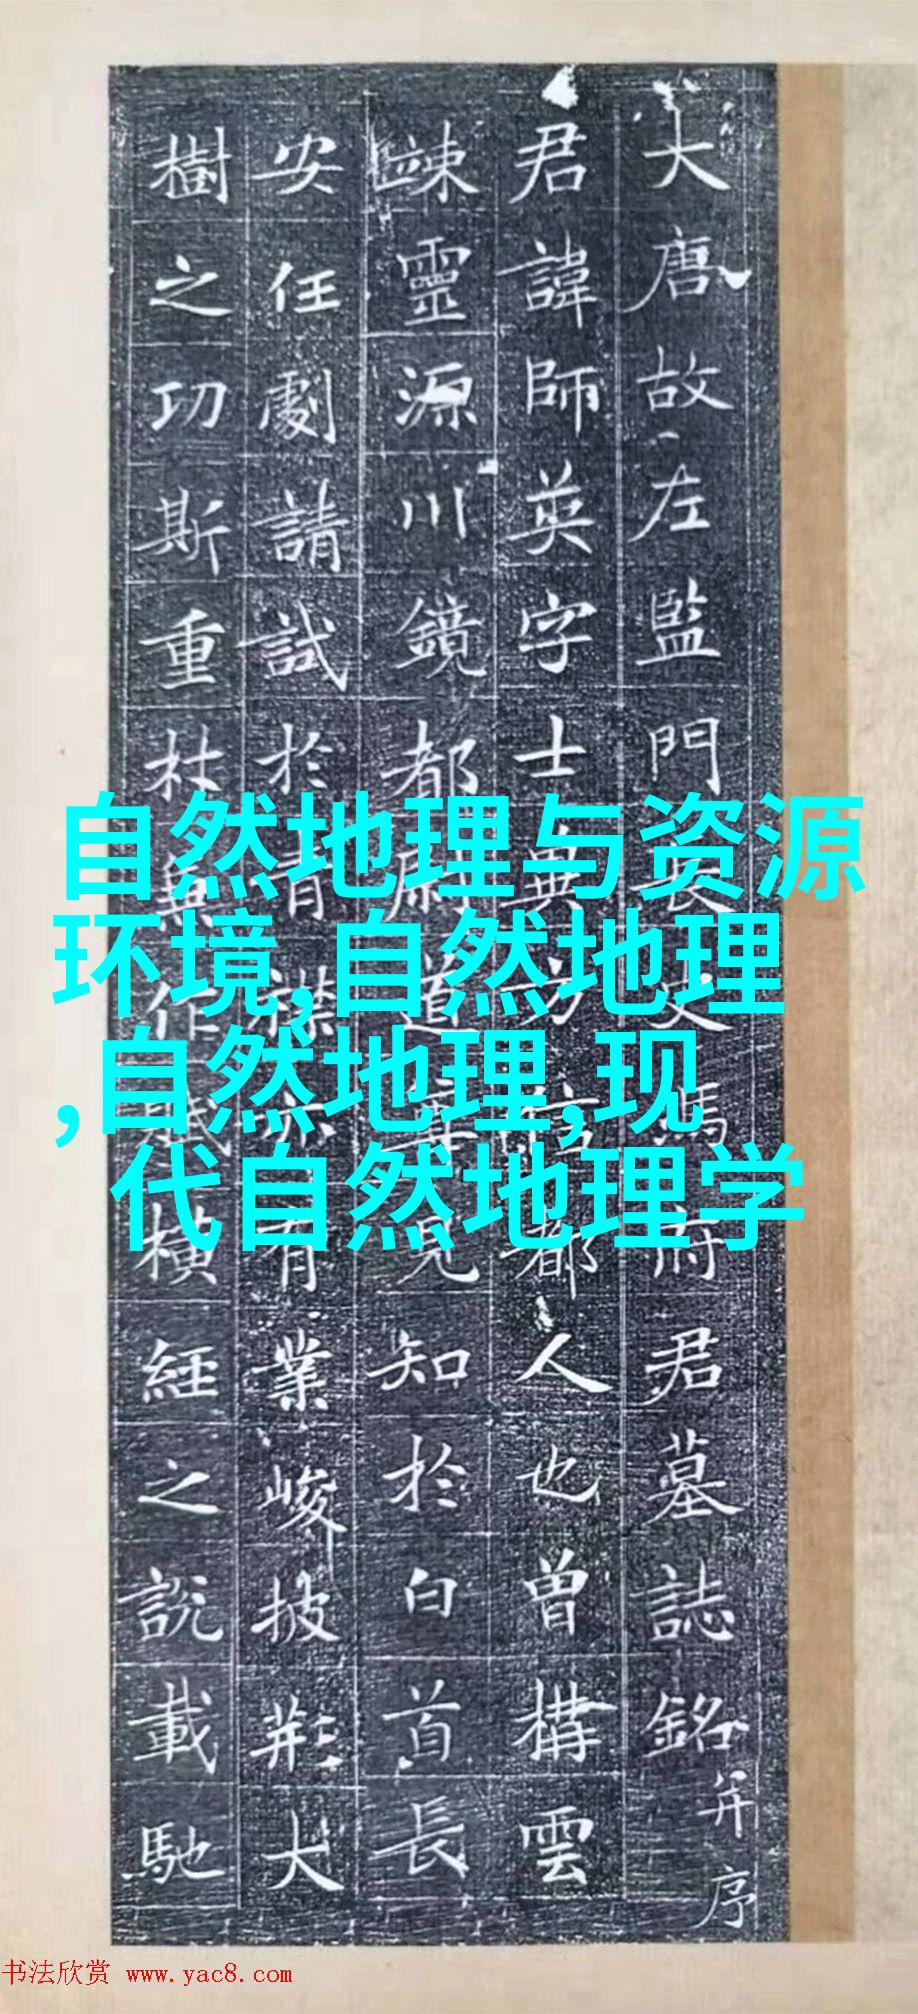 大唐故左監門長史馮府君墓誌銘并序
君諱師英字士都人也曾構雲
竦靈源川鏡都尉道知於白首長
安任劇請試於青襟亦有業峻披荊大
樹之功斯重杜橫經之說載馳
自然地理与资源
环境,自然地理
,自然地理,现
代自然地理学
书法欣赏 www.yac8.com